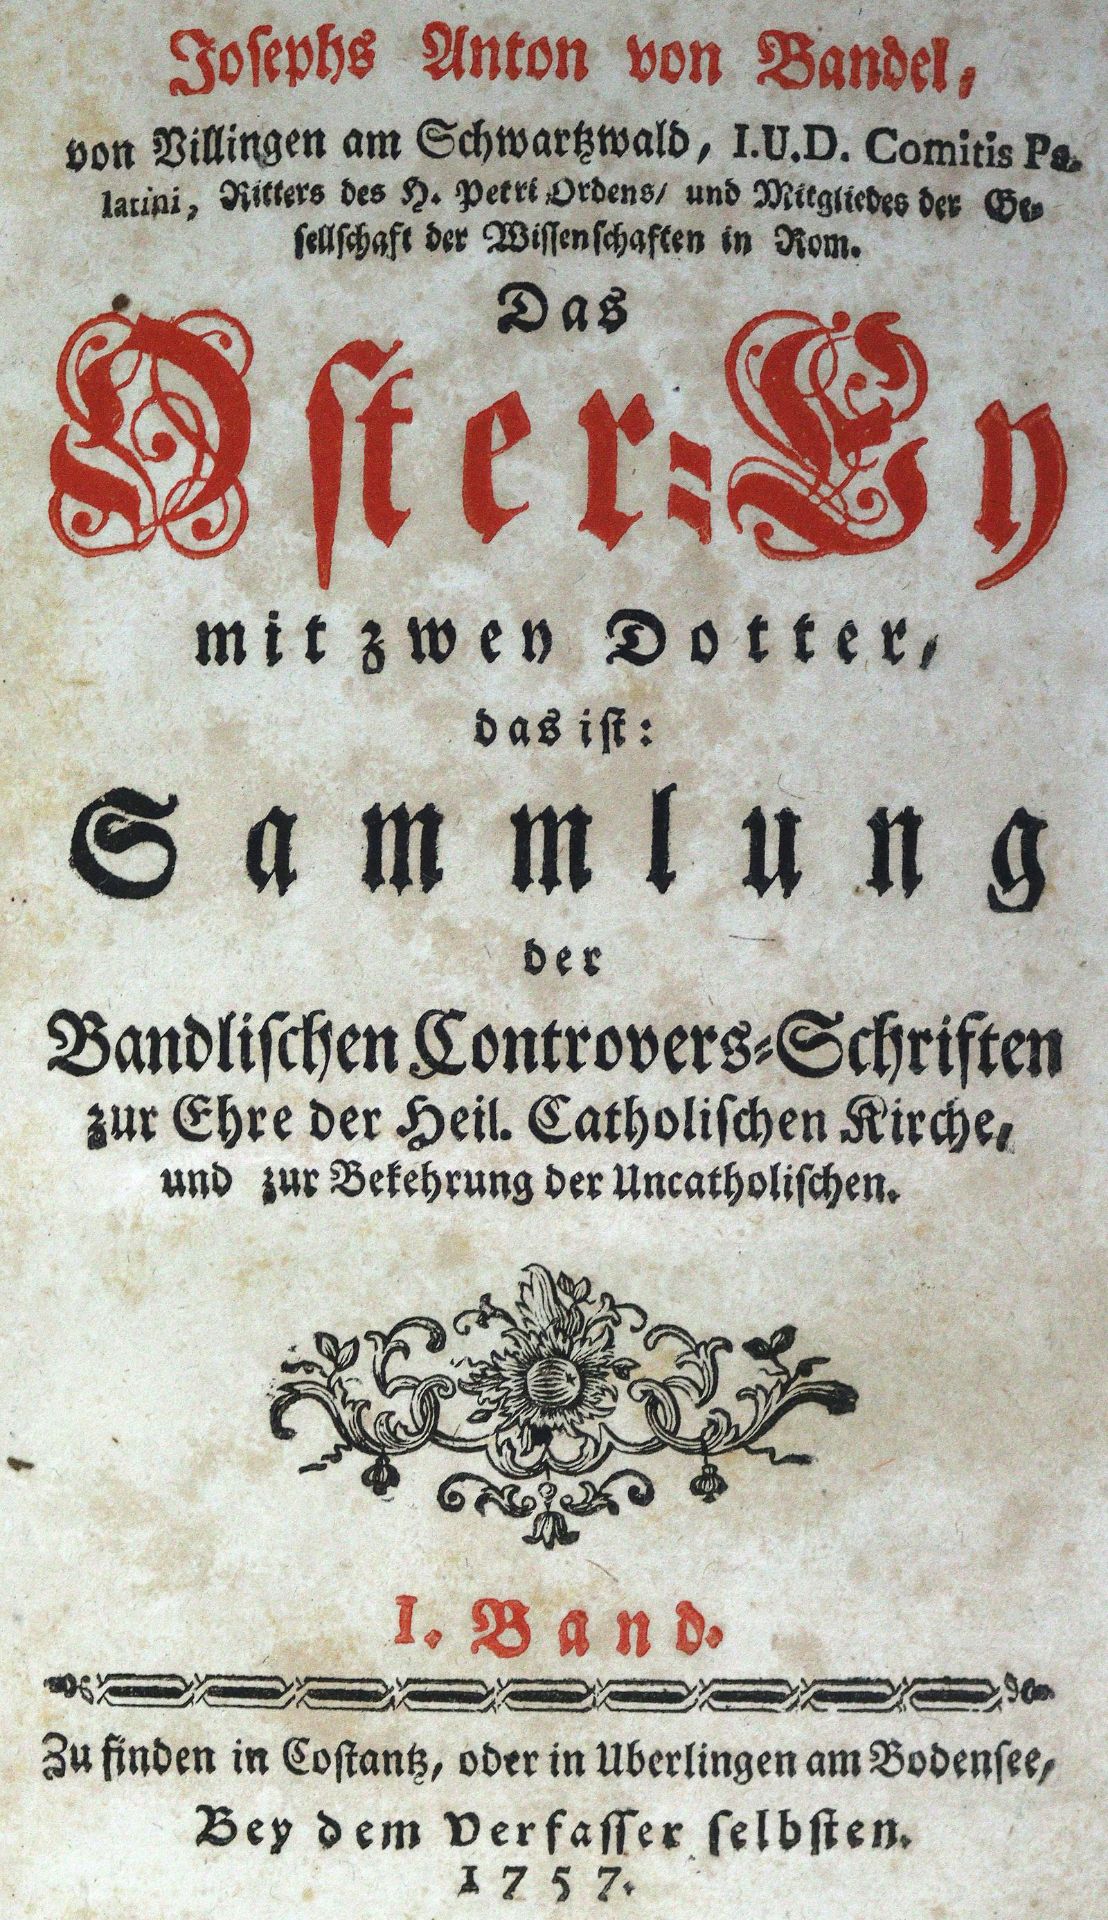 Josephs Anton von Bandel,
von Villingen am Schwartzwald, I.U.D. Comitis Pa-
latini, Ritters des H. Petri Ordens/ und Mitgliedes der Ge-
sellschaft der Wissenschaften in Rom.
Das
Oster-Ey
mit zwey Dotter,
das ist:
Sammlung
der
Bandlischen Controvers-Schriften
zur Ehre der Heil. Catholischen Kirche,
und zur Bekehrung der Uncatholischen.
I. Band.
Zu finden in Costantz, oder in Uberlingen am Bodensee,
Bey dem Verfasser selbsten.
1757.